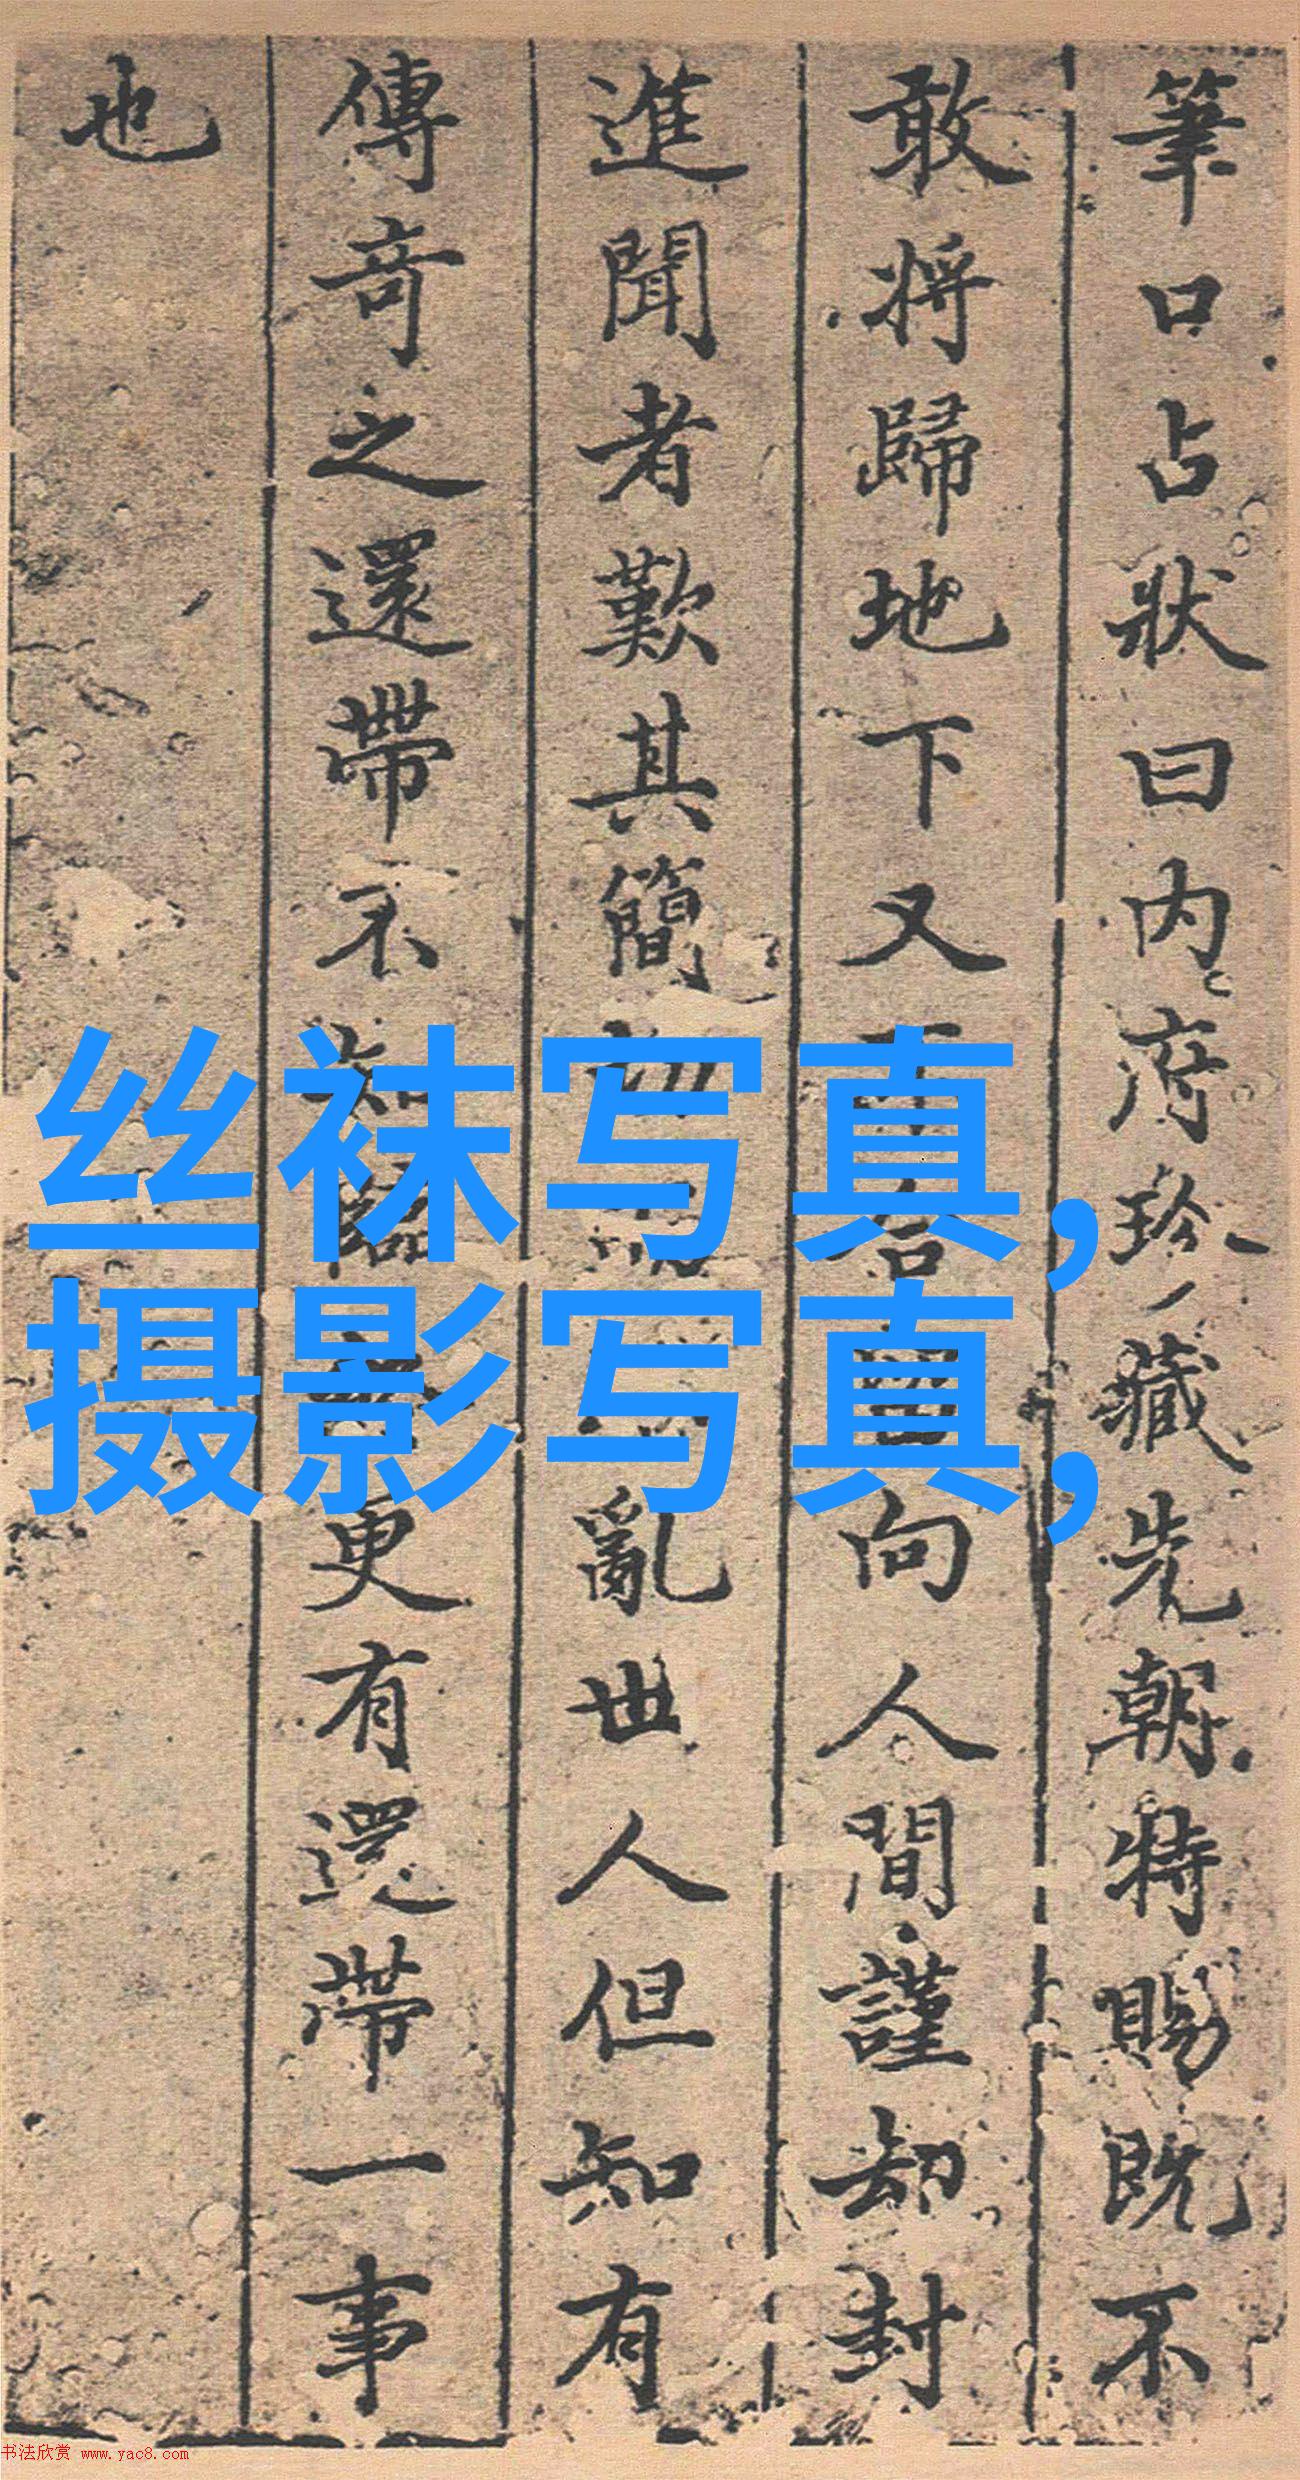 筆口占狀曰內府珍藏先朝特賜既不
敢將歸地下又向人間謹却封
進聞者歎其簡亂世人但知有
傳奇之還帶不知更有還帶一事
也
丝袜写真,
摄影写真,
书法欣赏 www.yac8.com